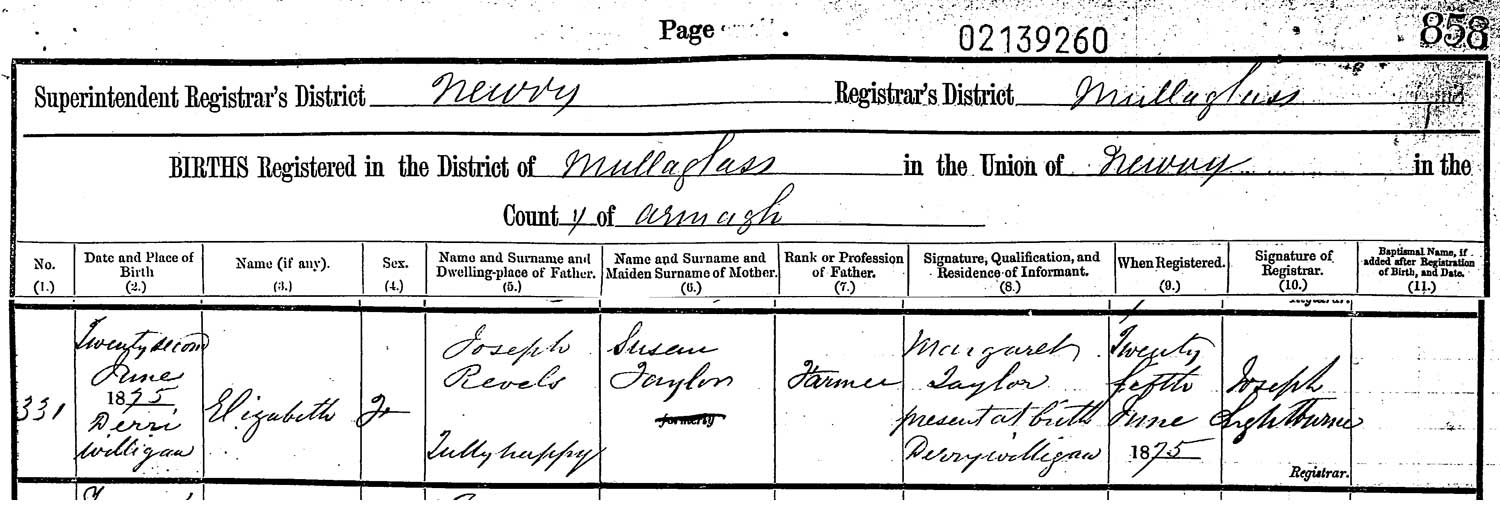 Page
02139260
858
Superintendent Registrar's District Newry Registrar's District Mullaglass
BIRTHS Registered in the District of Mullaglass in the Union of Newry in the
County of Armagh
No. (1.)
Date and Place of Birth (2.)
Name (if any). (3.)
Sex. (4.)
Name and Surname and Dwelling-place of Father. (5.)
Name and Surname and Maiden Surname of Mother. (6.)
Rank or Profession of Father. (7.)
Signature, Qualification, and Residence of Informant. (8.)
When Registered. (9.)
Signature of Registrar. (10.)
Baptismal Name, if added after Registration of Birth, and Date. (11.)
Registrar.
331
Twenty second
June
1875
Derri
willigan
Elizabeth
F
Joseph
Revels
Tullyhappy
Susan
Taylor
formerly
Farmer
Margaret
Taylor
present at birth
Derrywilligan
Twenty
fifth
June
1875
Joseph
Lightburne
Registrar.